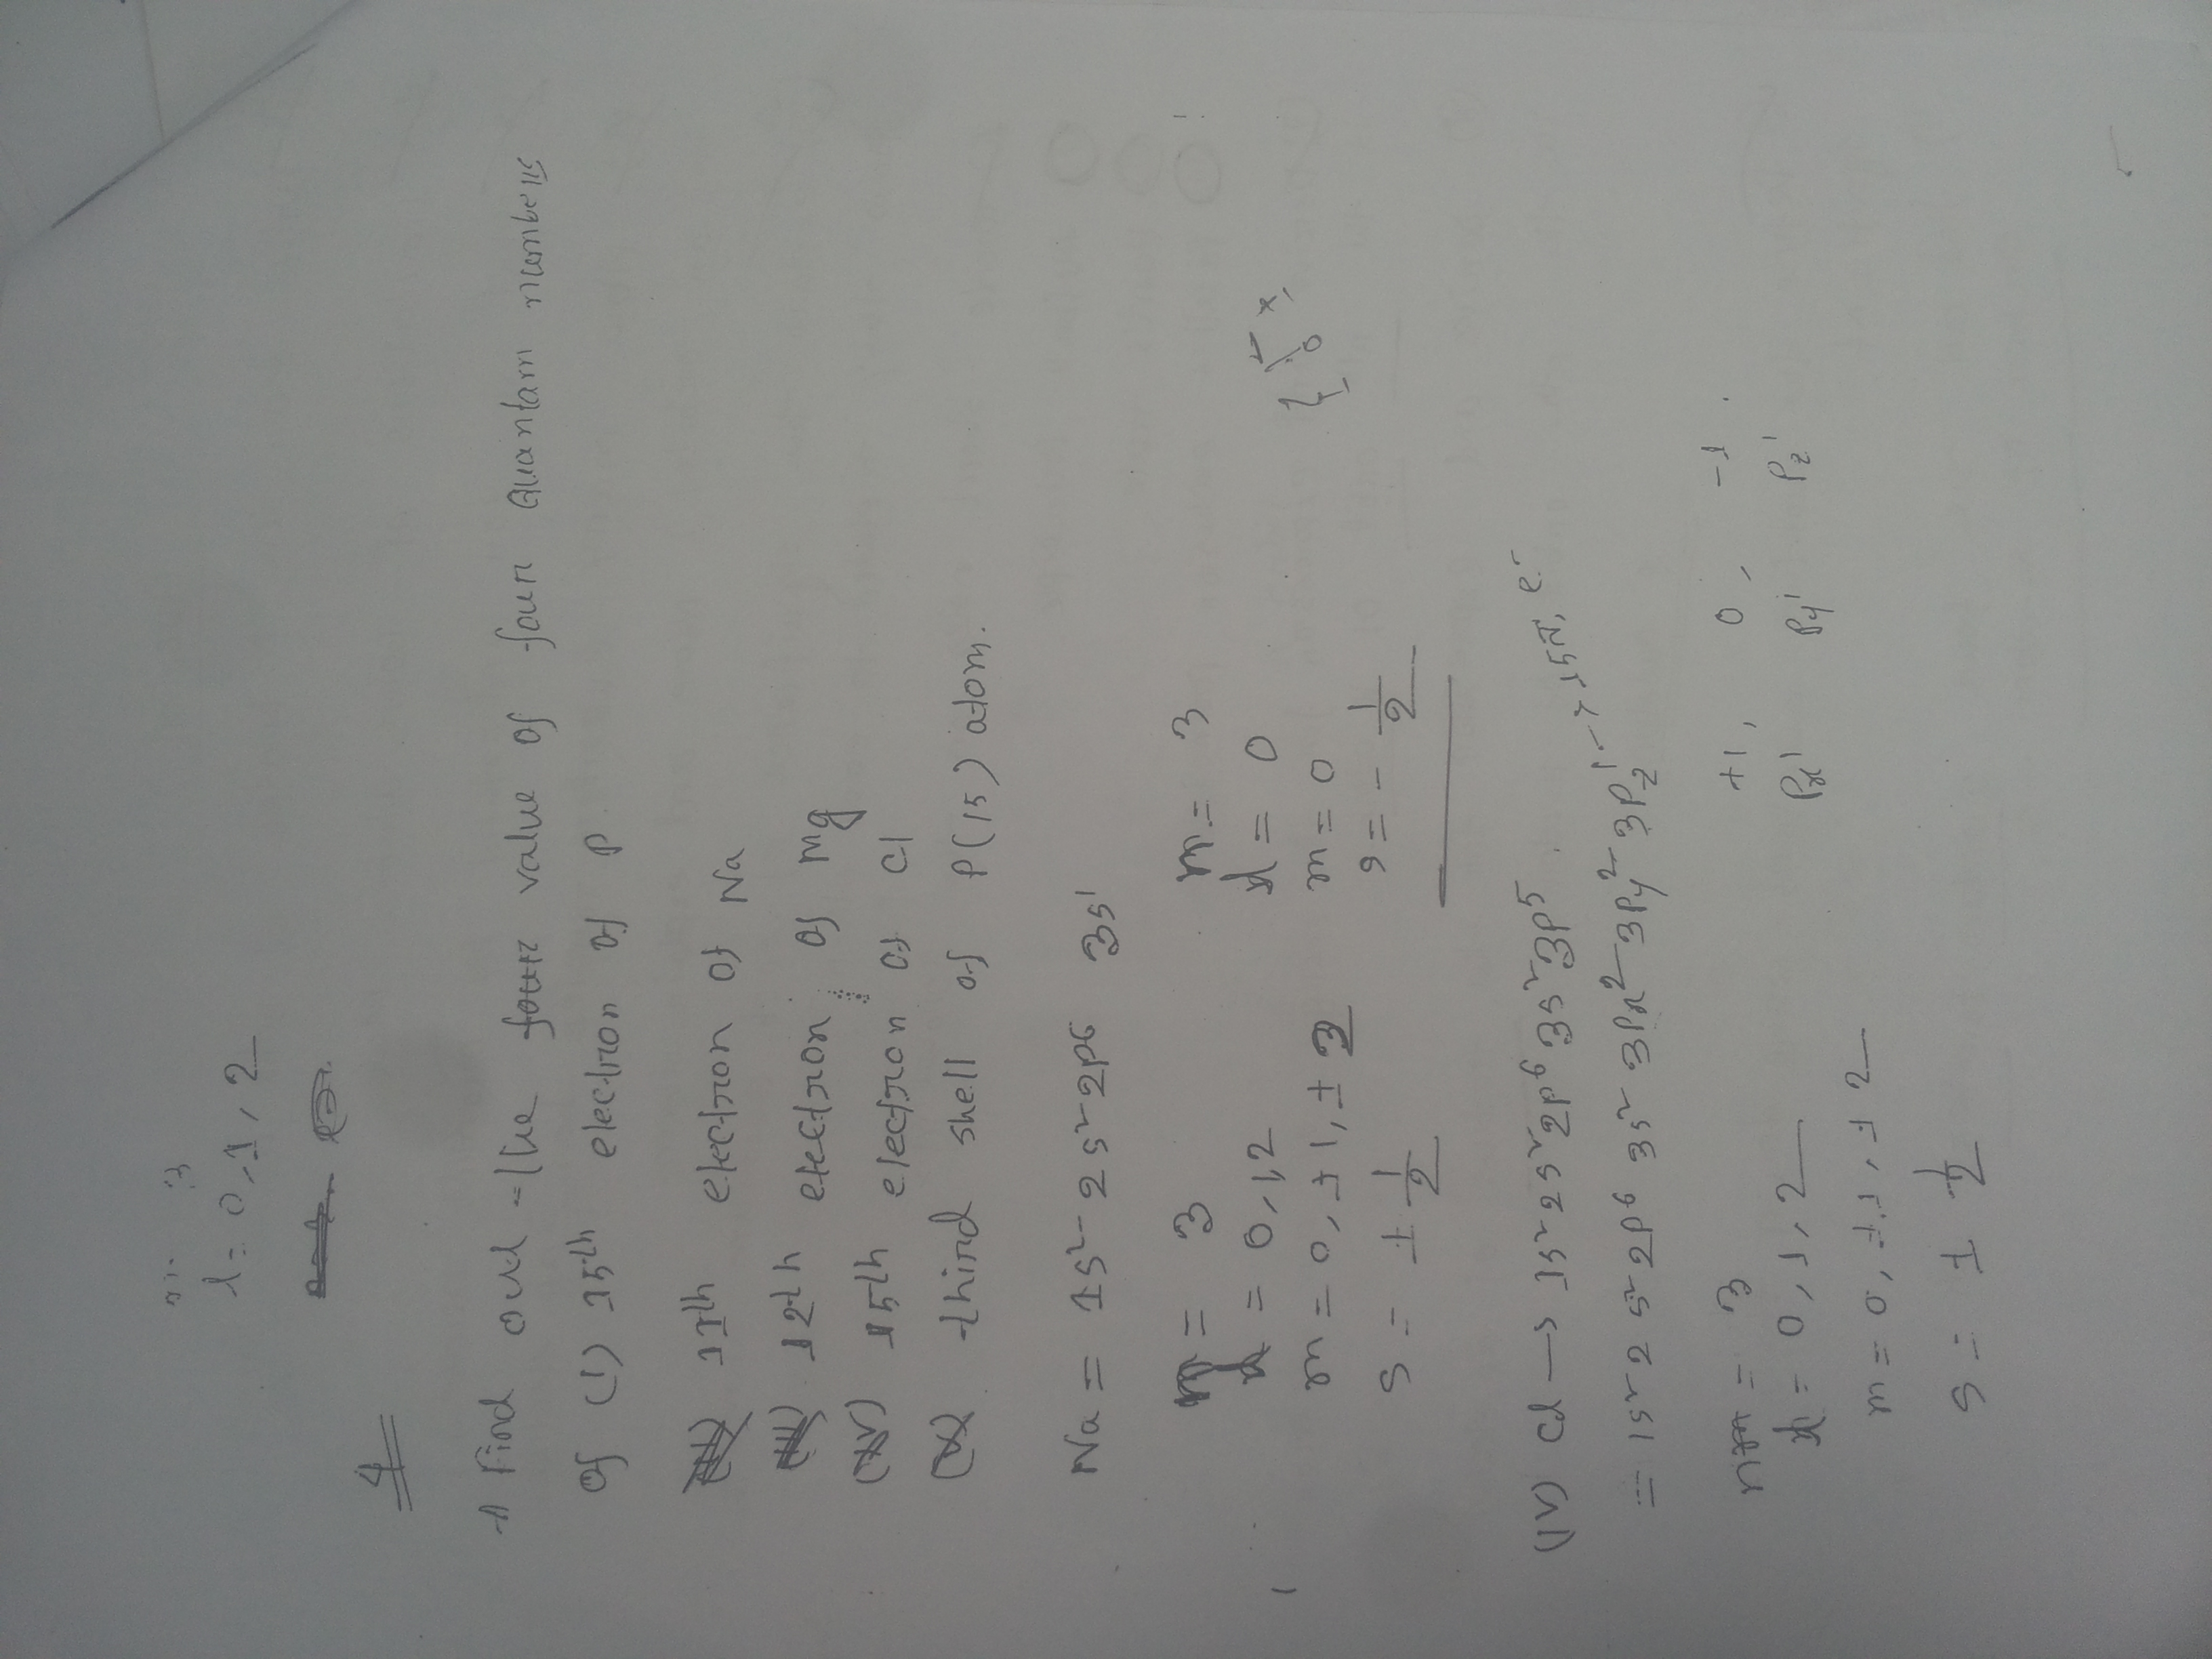 n= 3
l= 0,1,2
4
Find out the four value of four Quantam numbers
of (I) 15th electron of P
(II) 11th electron of Na
(III) 12th electron of Mg
(IV) 15th electron of Cl
(V) third shell of P(15) atom.
Na = 1s² 2s² 2p⁶ 3s¹
n = 3 n = 3
l = 0,1,2 l = 0
m = 0, ±1, ±2 m = 0
s = ± 1/2 s = - 1/2
(IV) Cl → 1s² 2s² 2p⁶ 3s² 3p⁵
= 1s² 2s² 2p⁶ 3s² 3Px² 3Py² 3Pz¹ → 15th e-
n = 3 +1, 0, -1.
l = 0, 1, 2 Px¹ Py¹ Pz¹
m = 0, ±1, ±2
s = ± 1/2